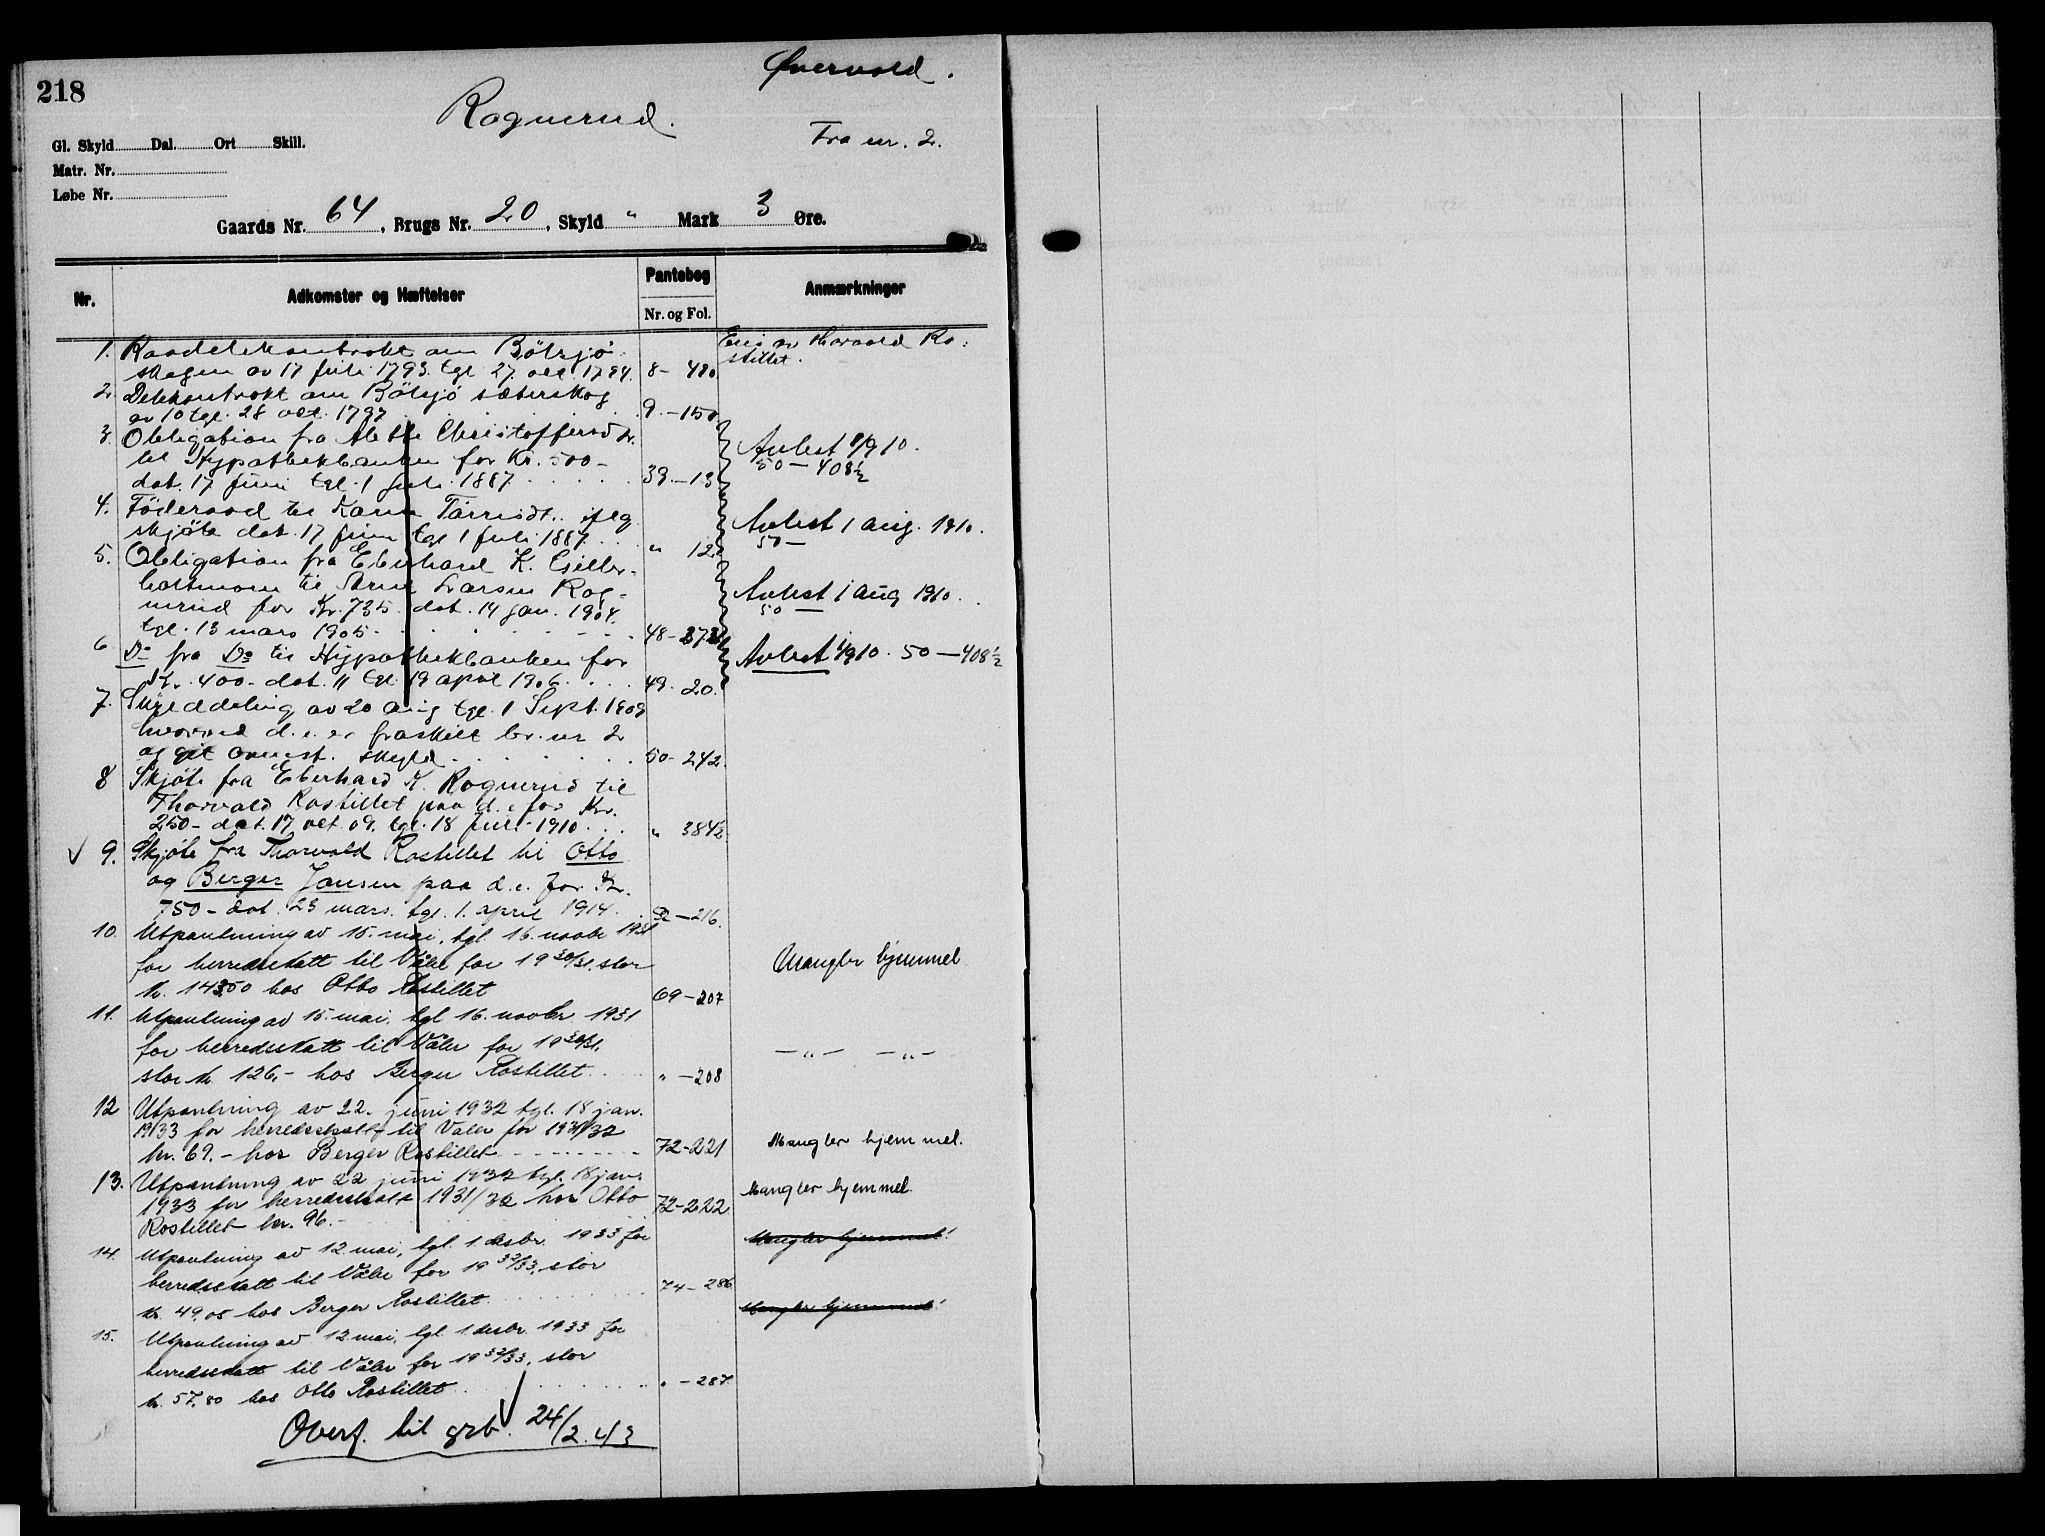 218
Øvervold.
Rognerud.
Fra nr. 2.
Gl. Skyld Dal. Ort Skill.
Matr. Nr.
Løbe Nr.
Gaards Nr. 64, Brugs Nr. 20, Skyld " Mark 3 Øre.
Nr. Adkomster og Hæftelser Pantebog Nr. og Fol. Anmærkninger
1. Raadelekontrakt om Bölsjö-
skogen av 17 juli 1793. tgl 27. oct. 1794. 8 - 480
Eies av Harald Ro-
stillet.
2. Delekontrakt om Bölsjö sæterskog
av 10 tgl. 28 oct. 1797 9. - 150
3. Obligation fra Christoffersd.
til Hypothekbanken for Kr. 500 -
dat. 17 juni tgl. 1 juli 1887. 39. - 13
Avlest 1/9 10.
50 - 408 1/2
4. Föderaad til Karen ifölg
skjöte dat. 17 juni tgl 1 juli 1887. " 12
Avlest 1 aug. 1910.
50 -
5. Obligation fra Eberhard K.
til Arne Larsen Rog-
nerud for Kr. 735. dat. 14 jan. 1904.
tgl. 13 mars 1905. 48 - 373
Avlest 1 aug 1910.
50 -
6 Do fra Do til Hypothekbanken for
Kr. 400 - dat. 11 tgl. 19 april 1906. 49. 20.
Avlest 1/9 10. 50 - 408 1/2
7. Skylddeling av 20 aug tgl. 1 Sept. 1909
hvorved d. e. er fraskilt br. nr 2
og git ovenst. skyld. 50 - 242.
8 Skjöte fra Eberhard K. Rognerud til
Thorvald Rostillet paa d. e. for Kr.
250 - dat. 17 oct. 09. tgl. 18 juli 1910. " 384 1/2
✓ 9. Skjöte fra Thorvald Rostillet til Otto
og Berger Jansen paa d. e. for Kr.
750 - dat. 23 mars. tgl. 1. april 1914. 52 - 216.
10. Utpantning av 15. mai, tgl. 16. novbr 1931
for herredsskatt til Våler for 1930/31, stor
kr. 143.50 hos Otto Rostillet 69 - 207
Mangler hjemmel
11. Utpantning av 15. mai, tgl 16. novbr 1931
for herredsskatt til Våler for 1930/31,
stor kr 126,- hos Berger Rostillet. " - 208
- " - - " -
12 Utpantning av 22. juni 1932 tgl. 18 jan.
1933 for herredsskatt til Våler for 1931/32
kr. 69. - hos Berger Rostillet 72 - 221
Mangler hjemmel.
13. Utpantning av 22 juni 1932 tgl. 18 jan.
1933 for herredsskatt 1931/32 hos Otto
Rostillet kr. 96. - 72 - 222
Mangler hjemmel.
14. Utpantning av 12 mai, tgl. 1. desbr. 1933 for
herredsskatt til Våler for 1932/33, stor
kr. 49,05 hos Berger Rostillet. 74 - 286
Mangler hjemmel!
15. Utpantning av 12. mai, tgl. 1. desbr. 1933 for
herredsskatt til Våler for 1932/33, stor
kr. 57,80 hos Otto Rostillet. " - 287
Mangler hjemmel!
Overf. til grb. 24/2.43